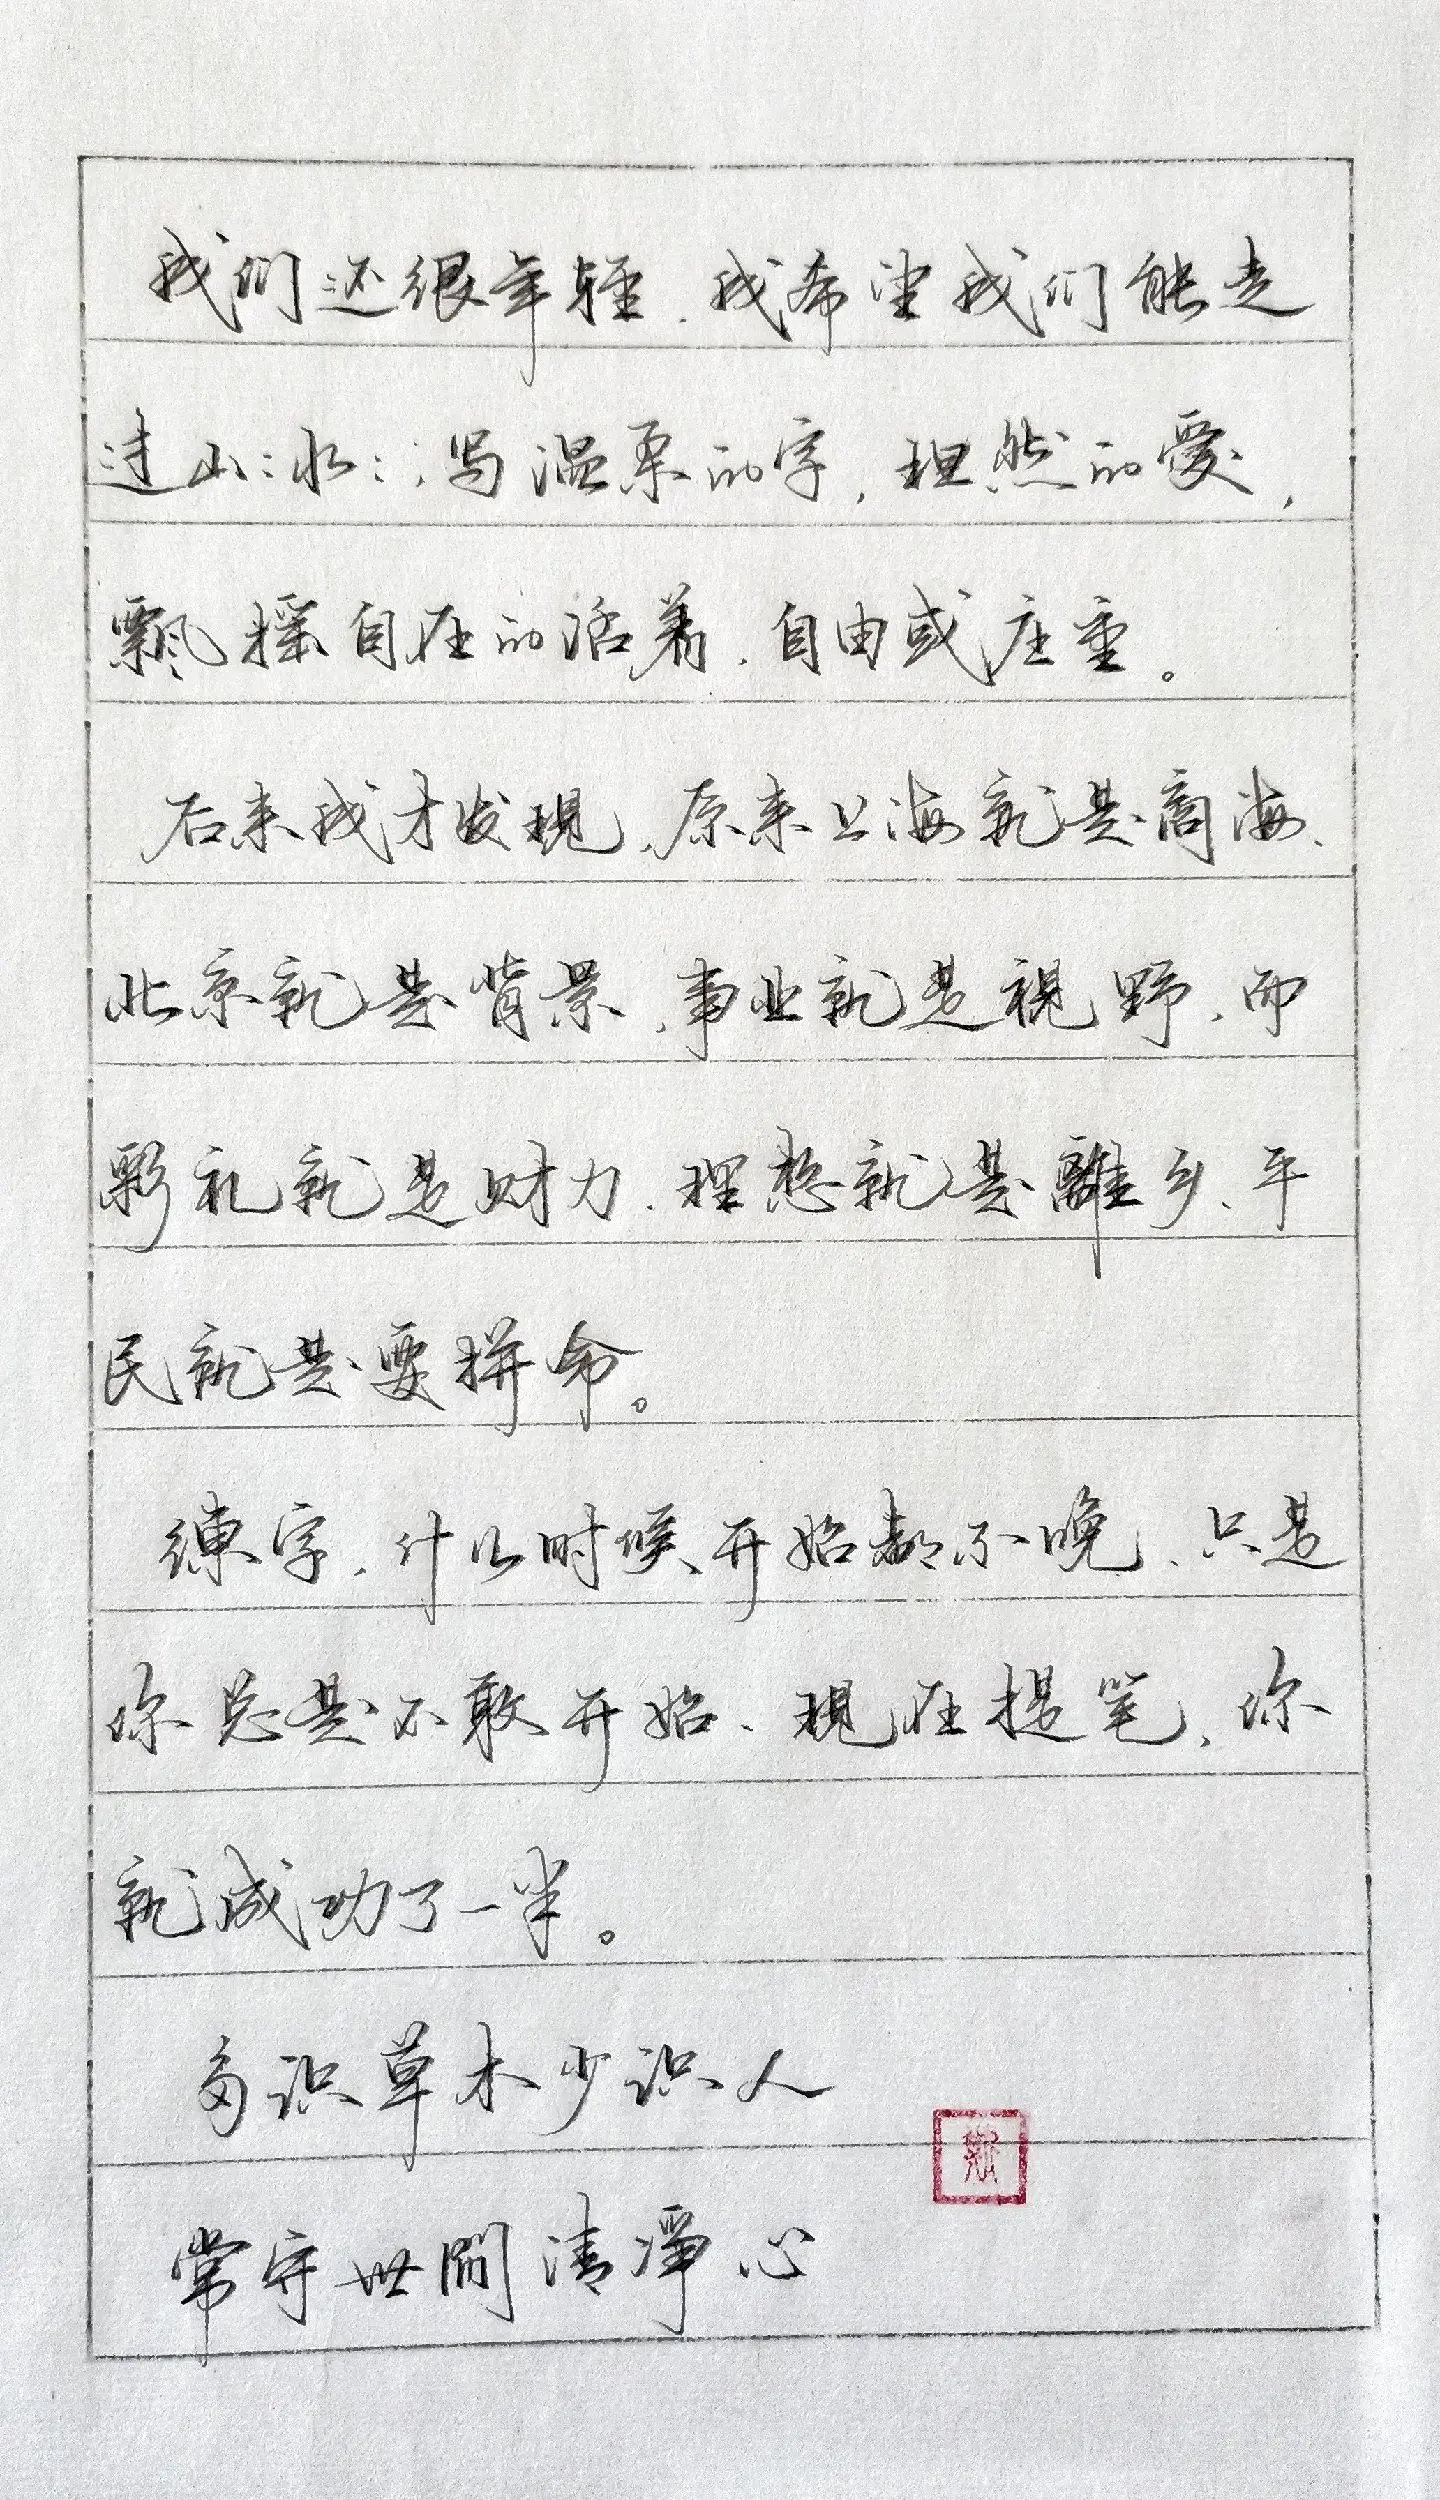 我们还很年轻，我希望我们能走
过山:水:，写温柔的字，坦然的爱，
飘摇自在的活着，自由或庄重。
后来我才发现，原来上海就是商海、
北京就是背景，事业就是视野，而
彩礼就是财力，理想就是離乡、平
民就是要拼命。
練字，什么时候开始都不晚，只是
你总是不敢开始，现在提笔，你
就成功了一半。
多识草木少识人
常守世间清净心